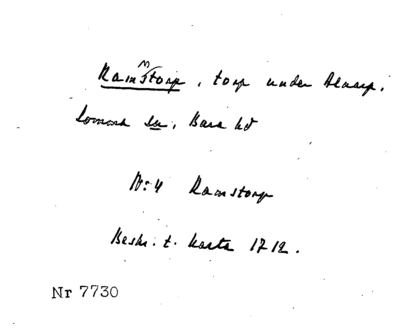 Ramstorp, torp under Alnarp,
Lomma sn, Bara hd
N:4 Ramstorp
Beskr. t. karta 1712.
Nr 7730